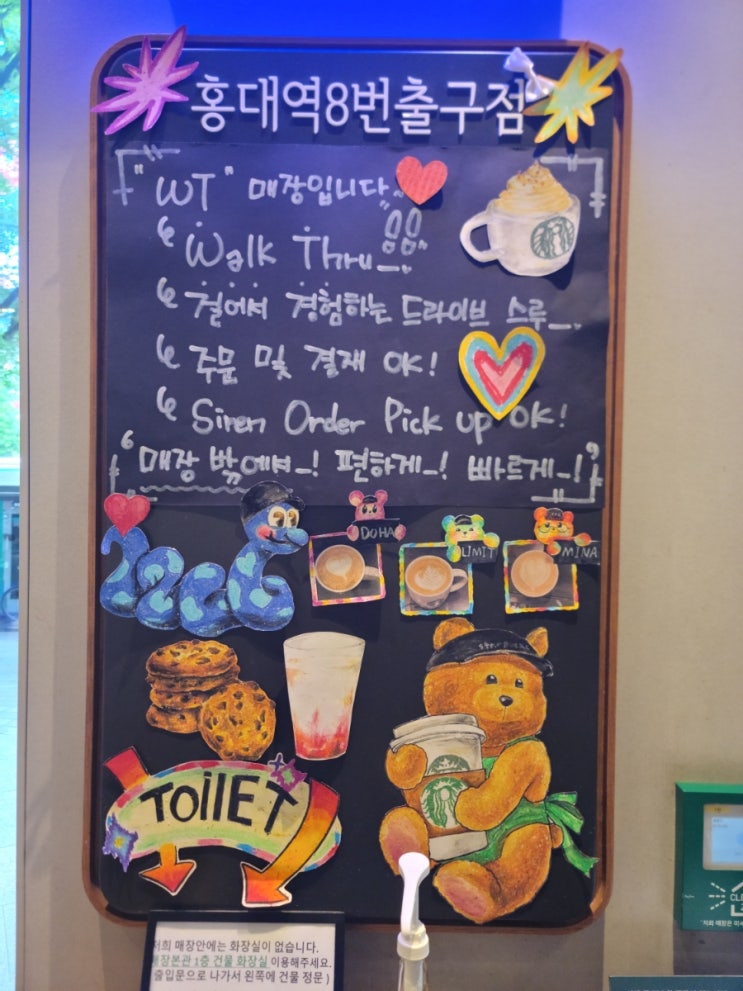 홍대역8번출구점
"WT" 매장입니다~
Walk Thru~
걸어서 경험하는 드라이브 스루~
주문 및 결재 OK!
Siren Order Pick up OK!
'매장 밖에서~! 편하게~! 빠르게~!'
DOHA
LIMIT
MINA
TOilET
저희 매장안에는 화장실이 없습니다.
매장본관 1층 건물 화장실 이용해주세요.
출입문으로 나가서 왼쪽에 건물 정문 )